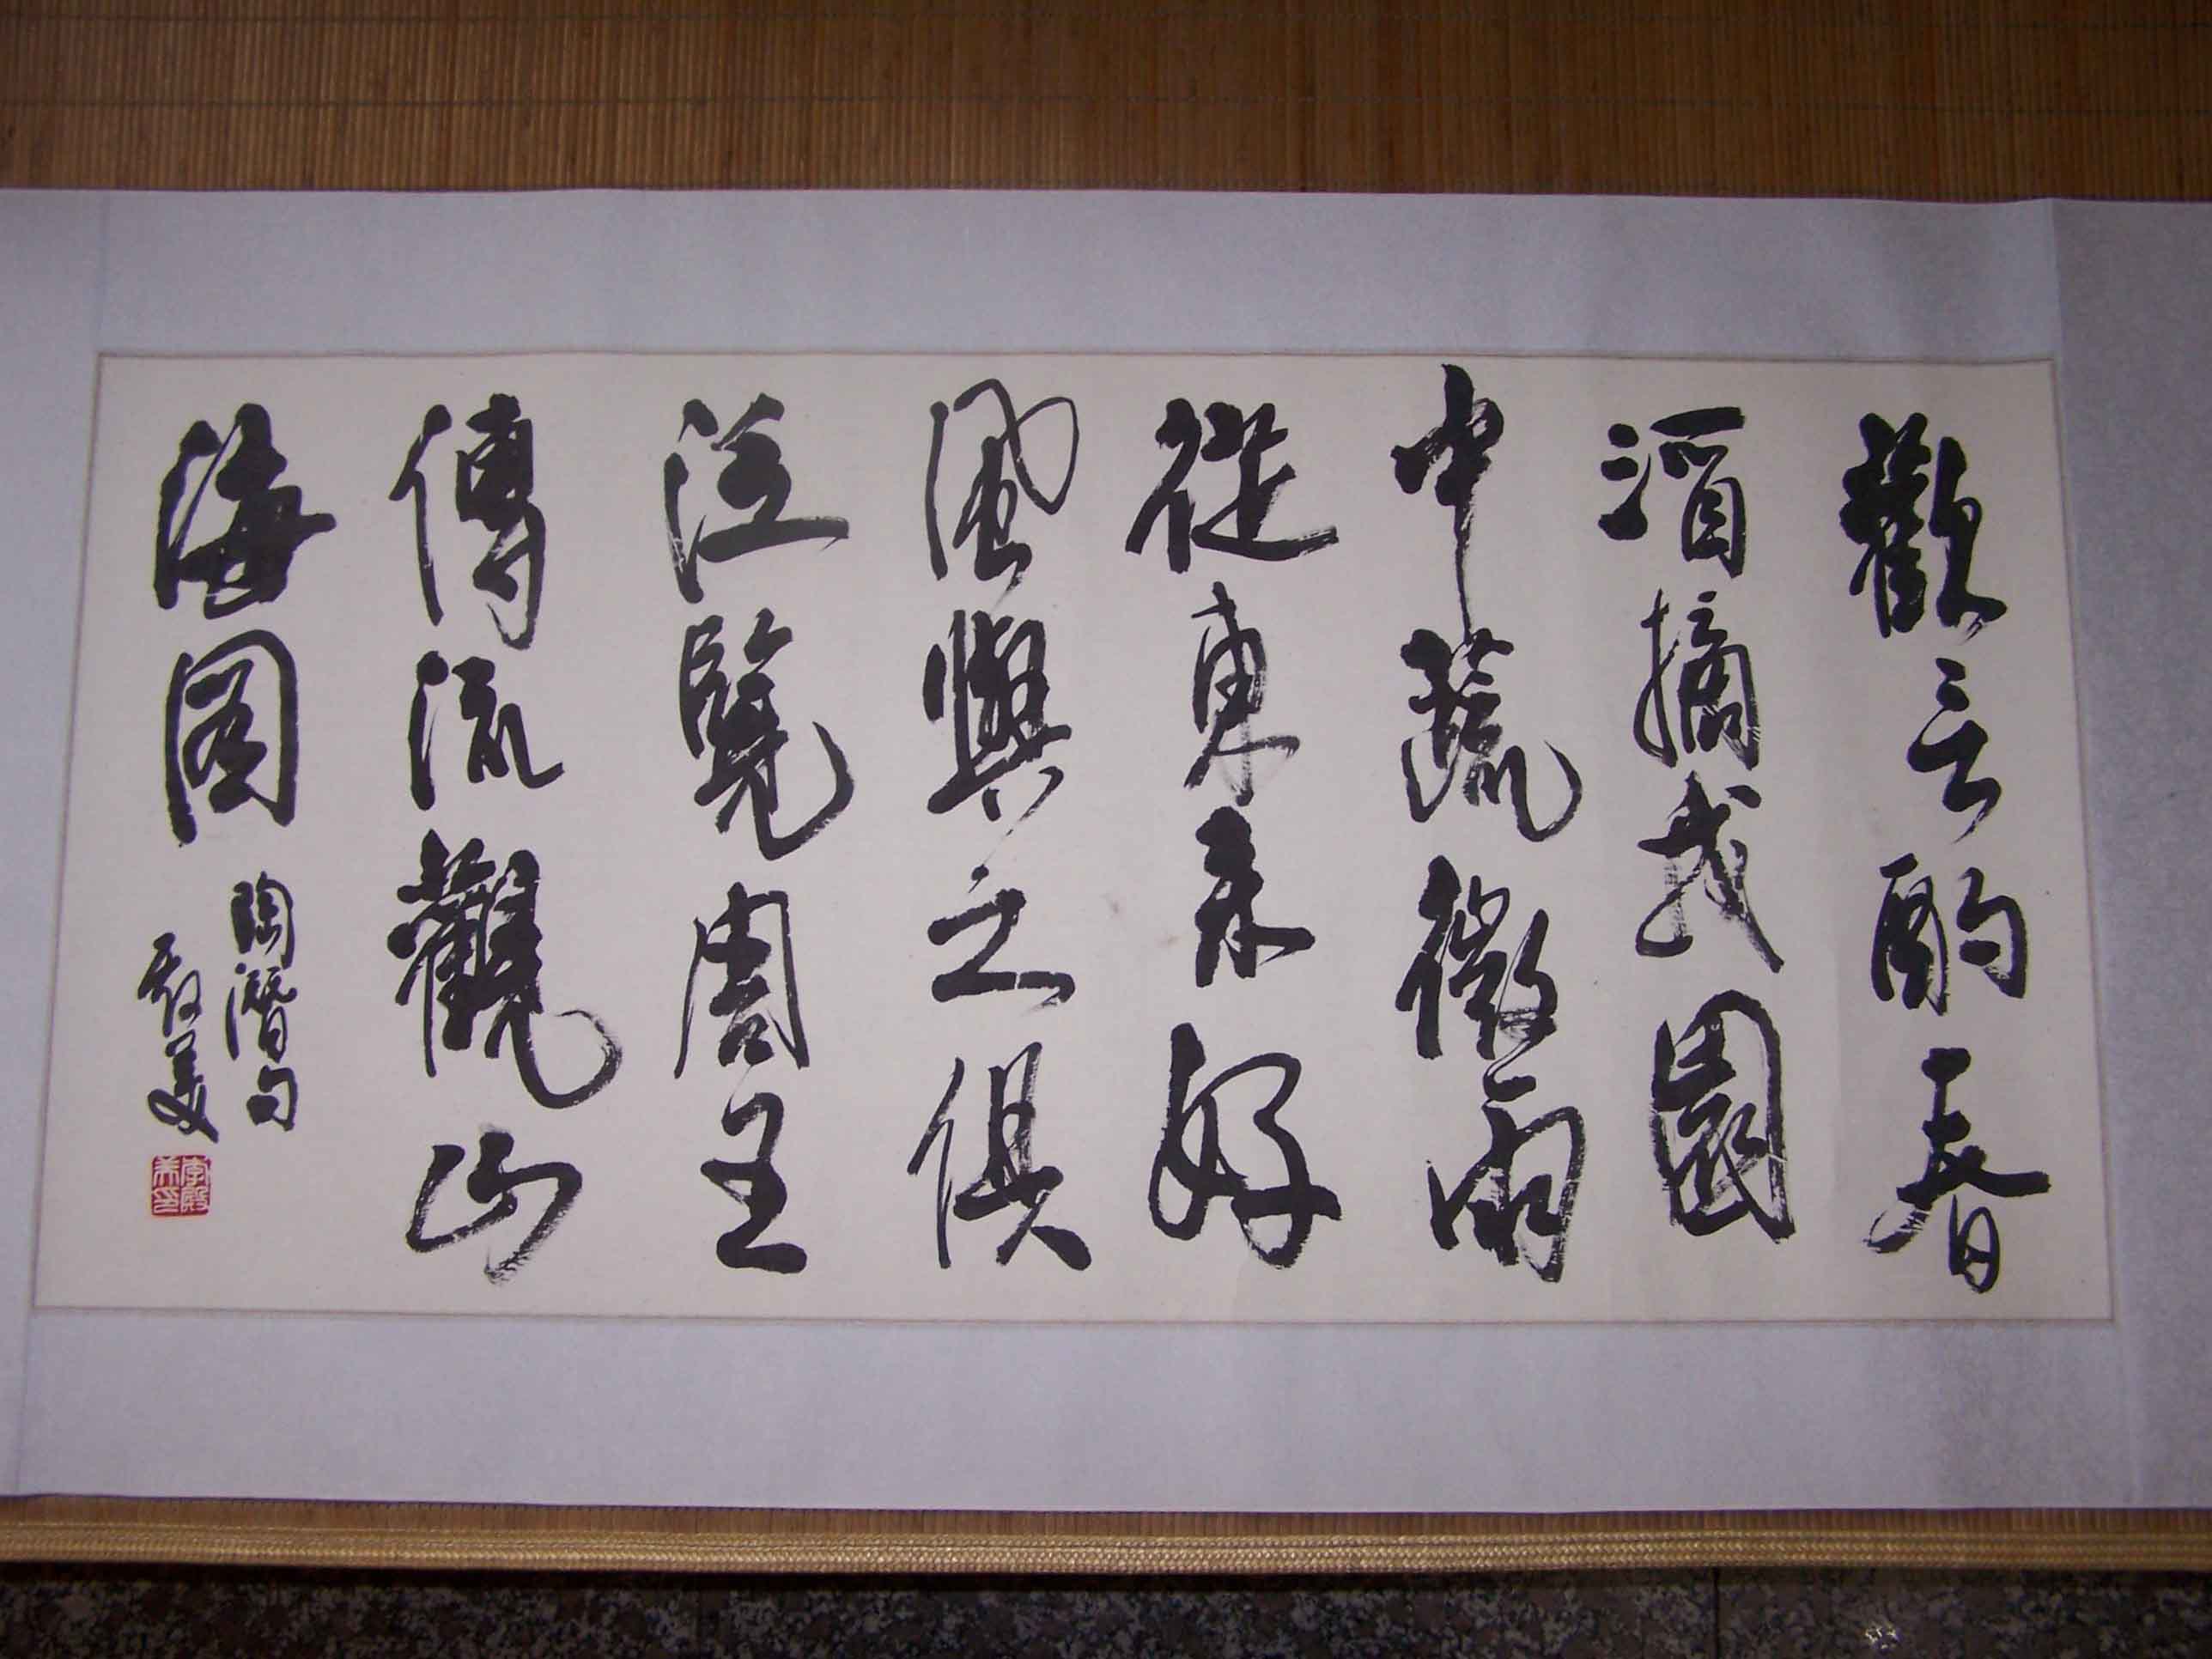 歡言酌春
酒摘我園
中蔬微雨
從東來好
風與之俱
泛覽周王
傳流觀山
海圖
陶潛句
殿美
李殿
美印